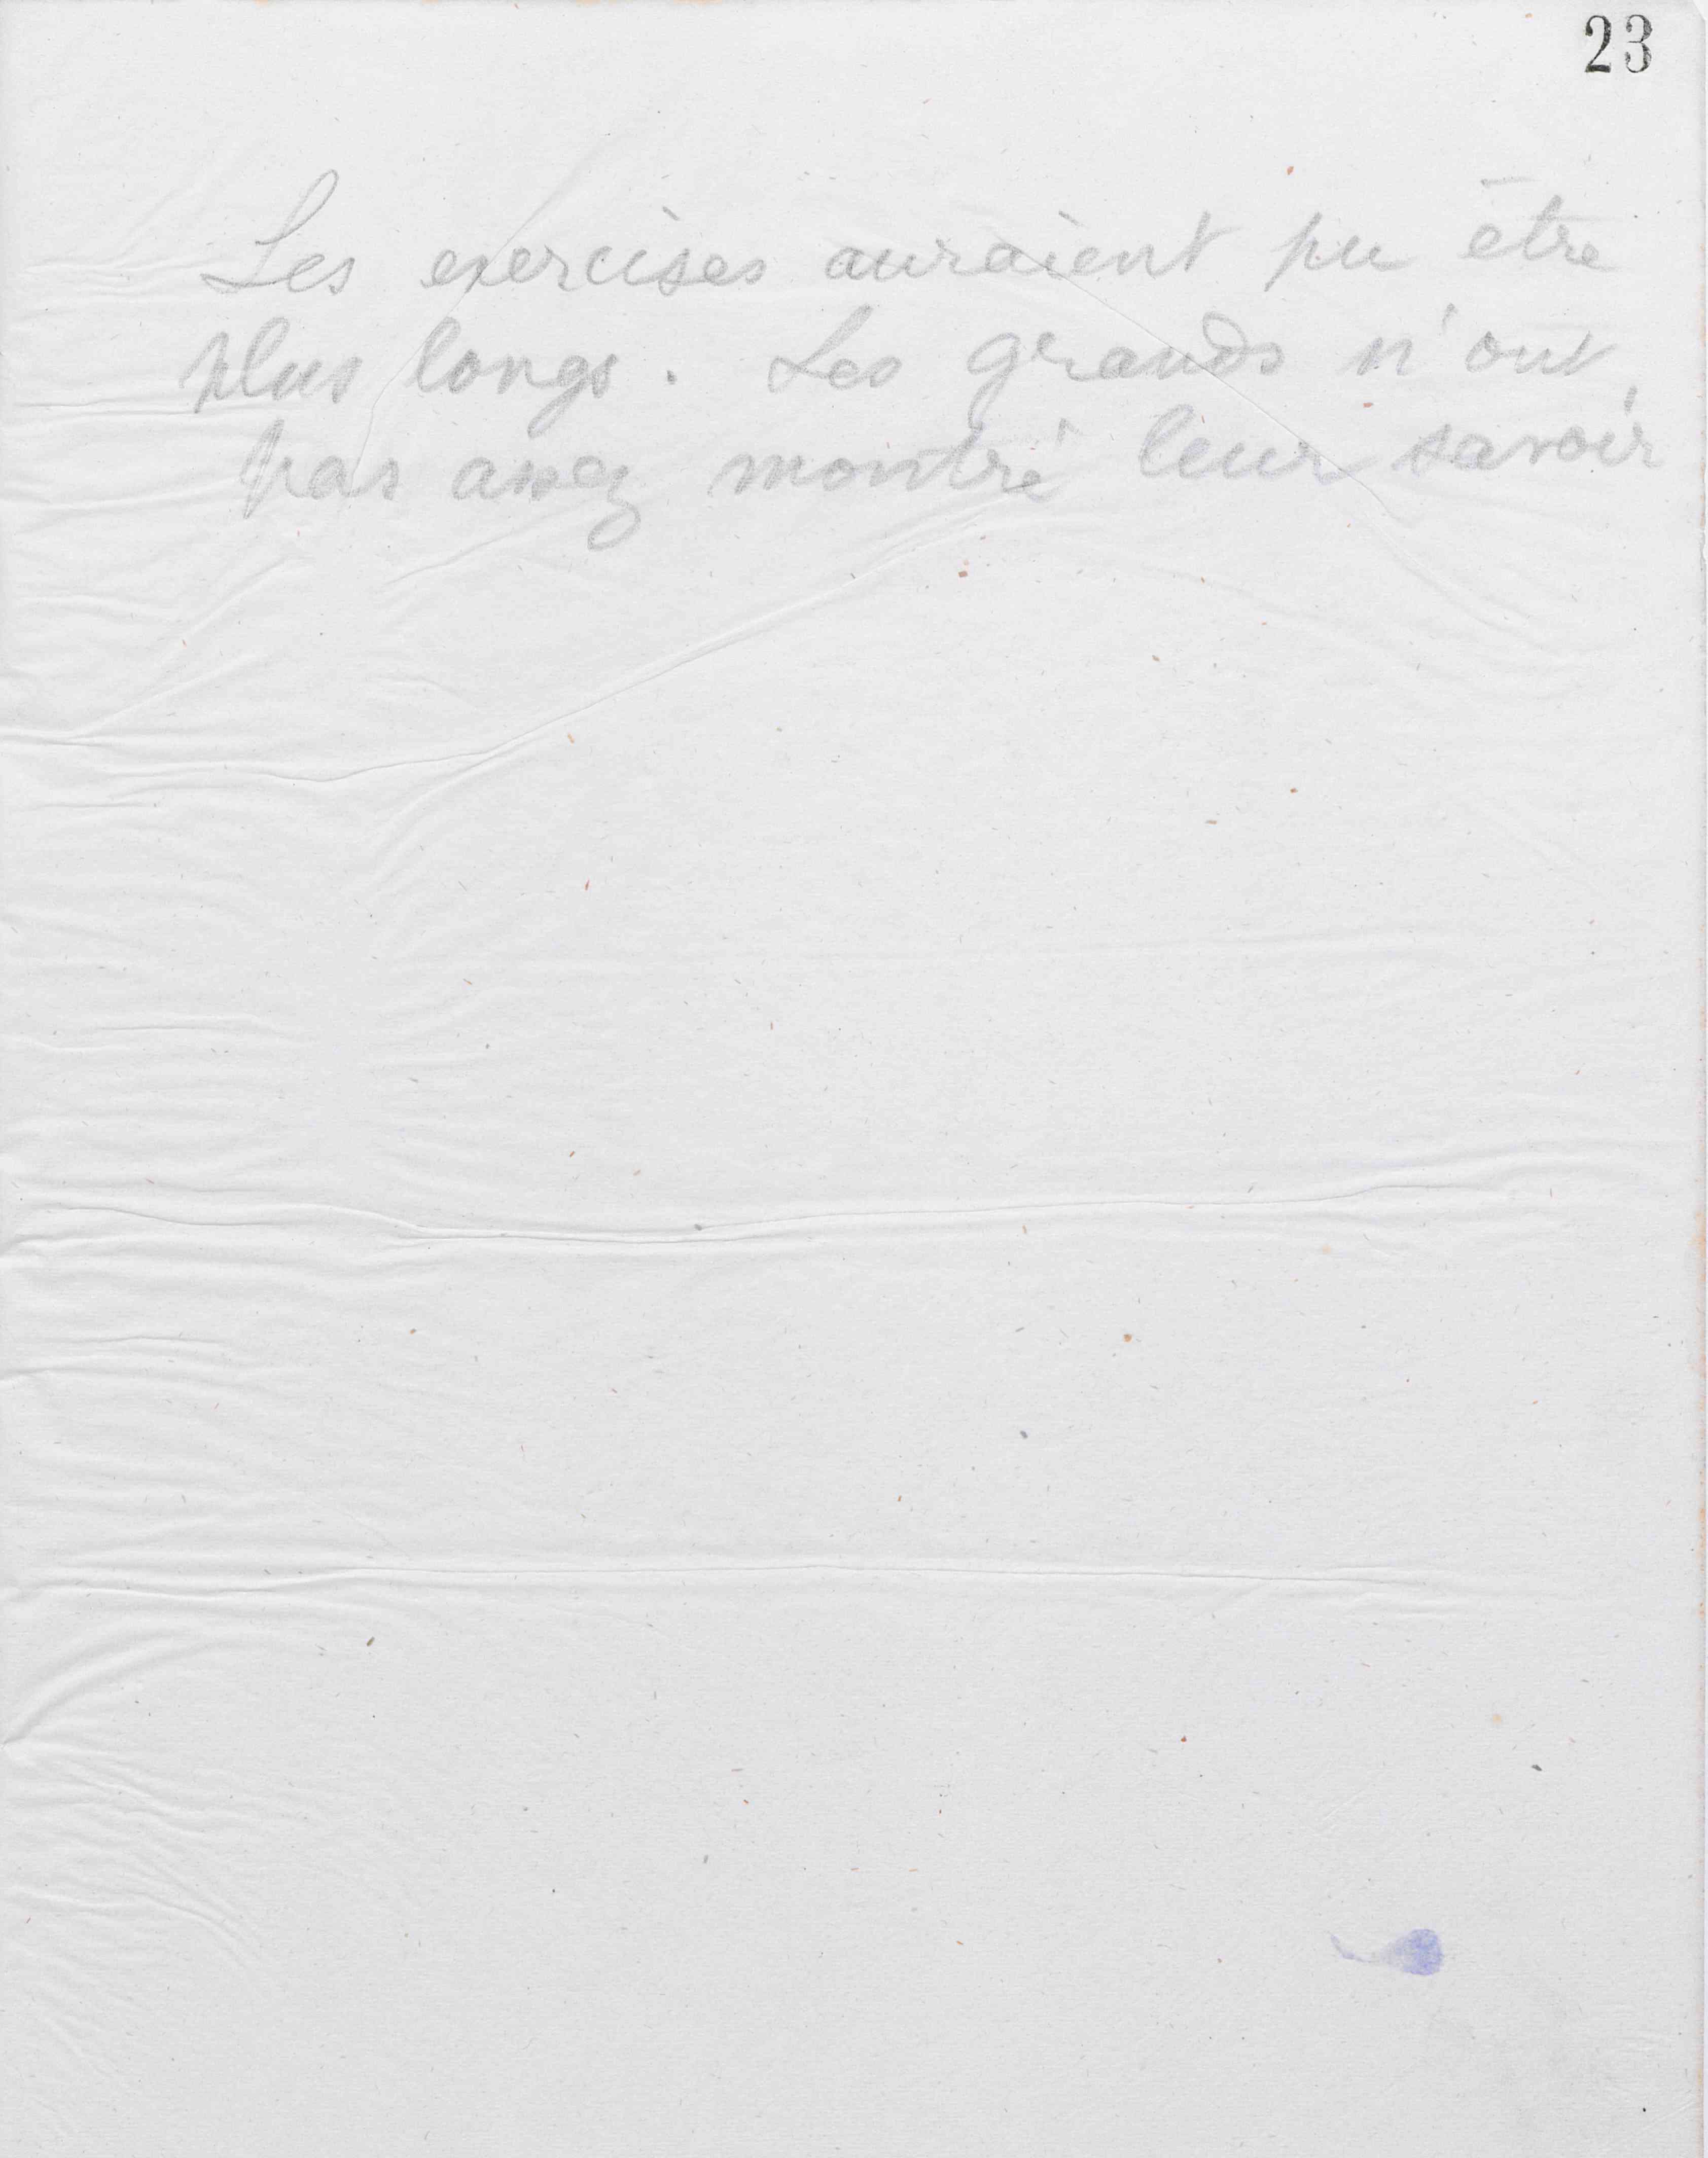 23
Les exercises auraient pu être
plus longs. Les grands n'ont
pas assez montré leur savoir